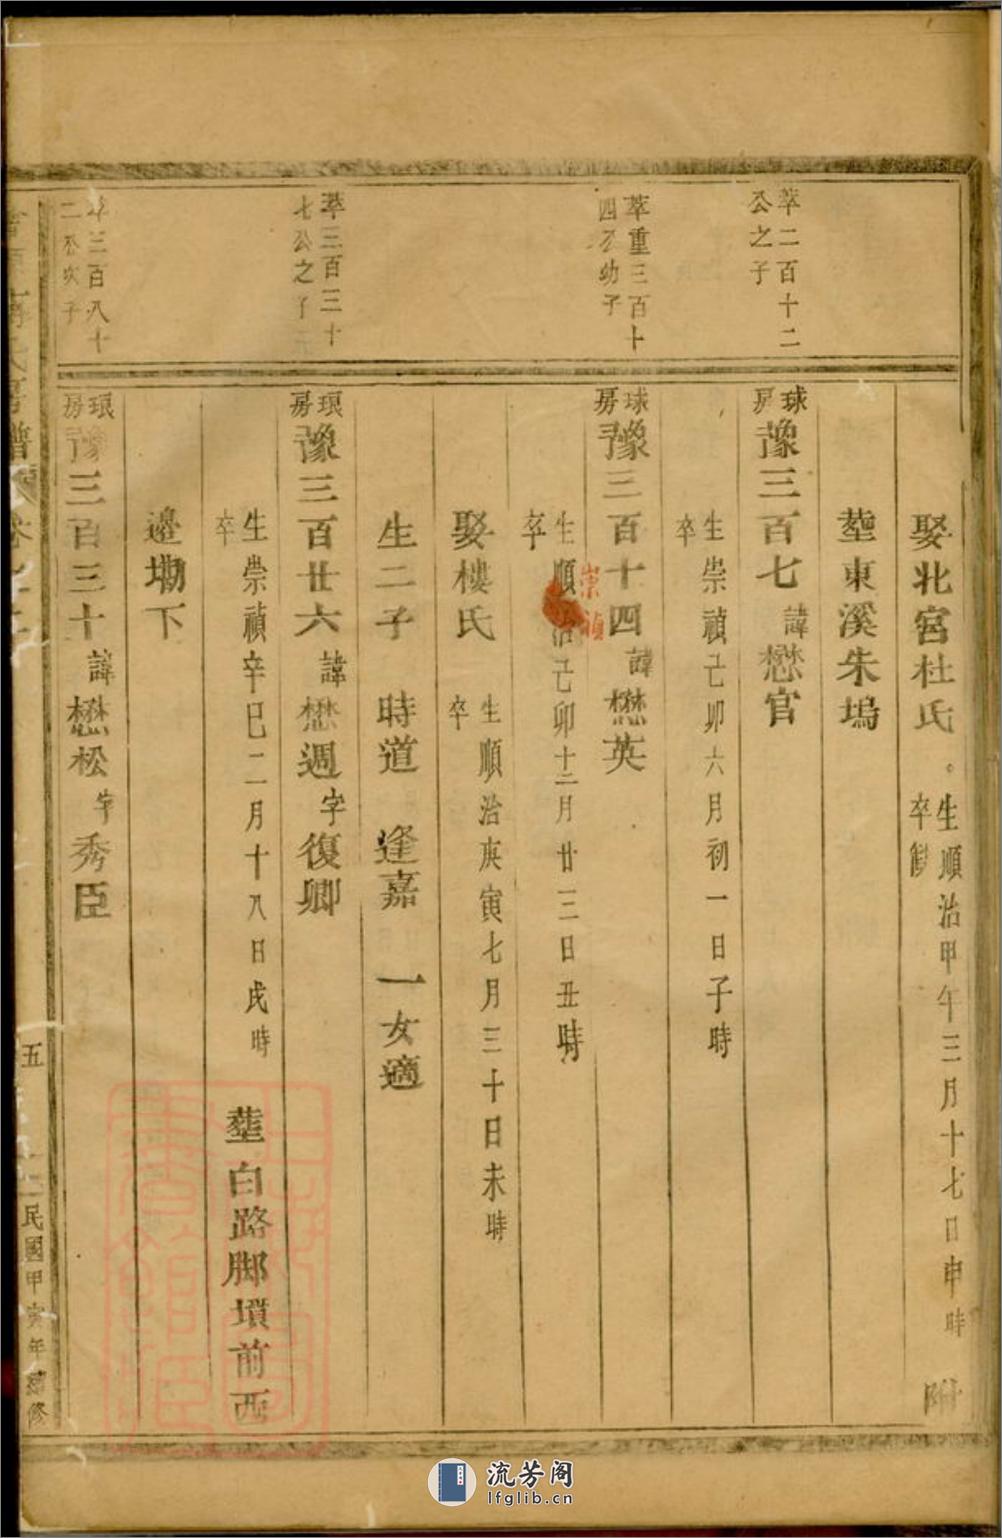 娶北宮杜氏。生順治甲午三月十七日申時
卒
塟東溪朱塢
萃二百十二
公之子
球房豫三百七諱懋官
生崇禎己卯六月初一日子時
卒
萃重三百十
四公幼子
球房豫三百十四諱懋英
生順治己卯十二月廿三日丑時
崇禎
卒
娶樓氏 生順治庚寅七月三十日未時
卒
生二子 時道 逢嘉 一女適
萃三百三十
七公之子
琅房豫三百廿六諱懋週字復卿
生崇禎辛巳二月十八日戌時
卒
塟白路脚墳前西
邉塝下
萃三百八十
二公次子
琅房豫三百三十諱懋松字秀臣
五
民國甲寅年續修
流芳阁
lfglib.cn